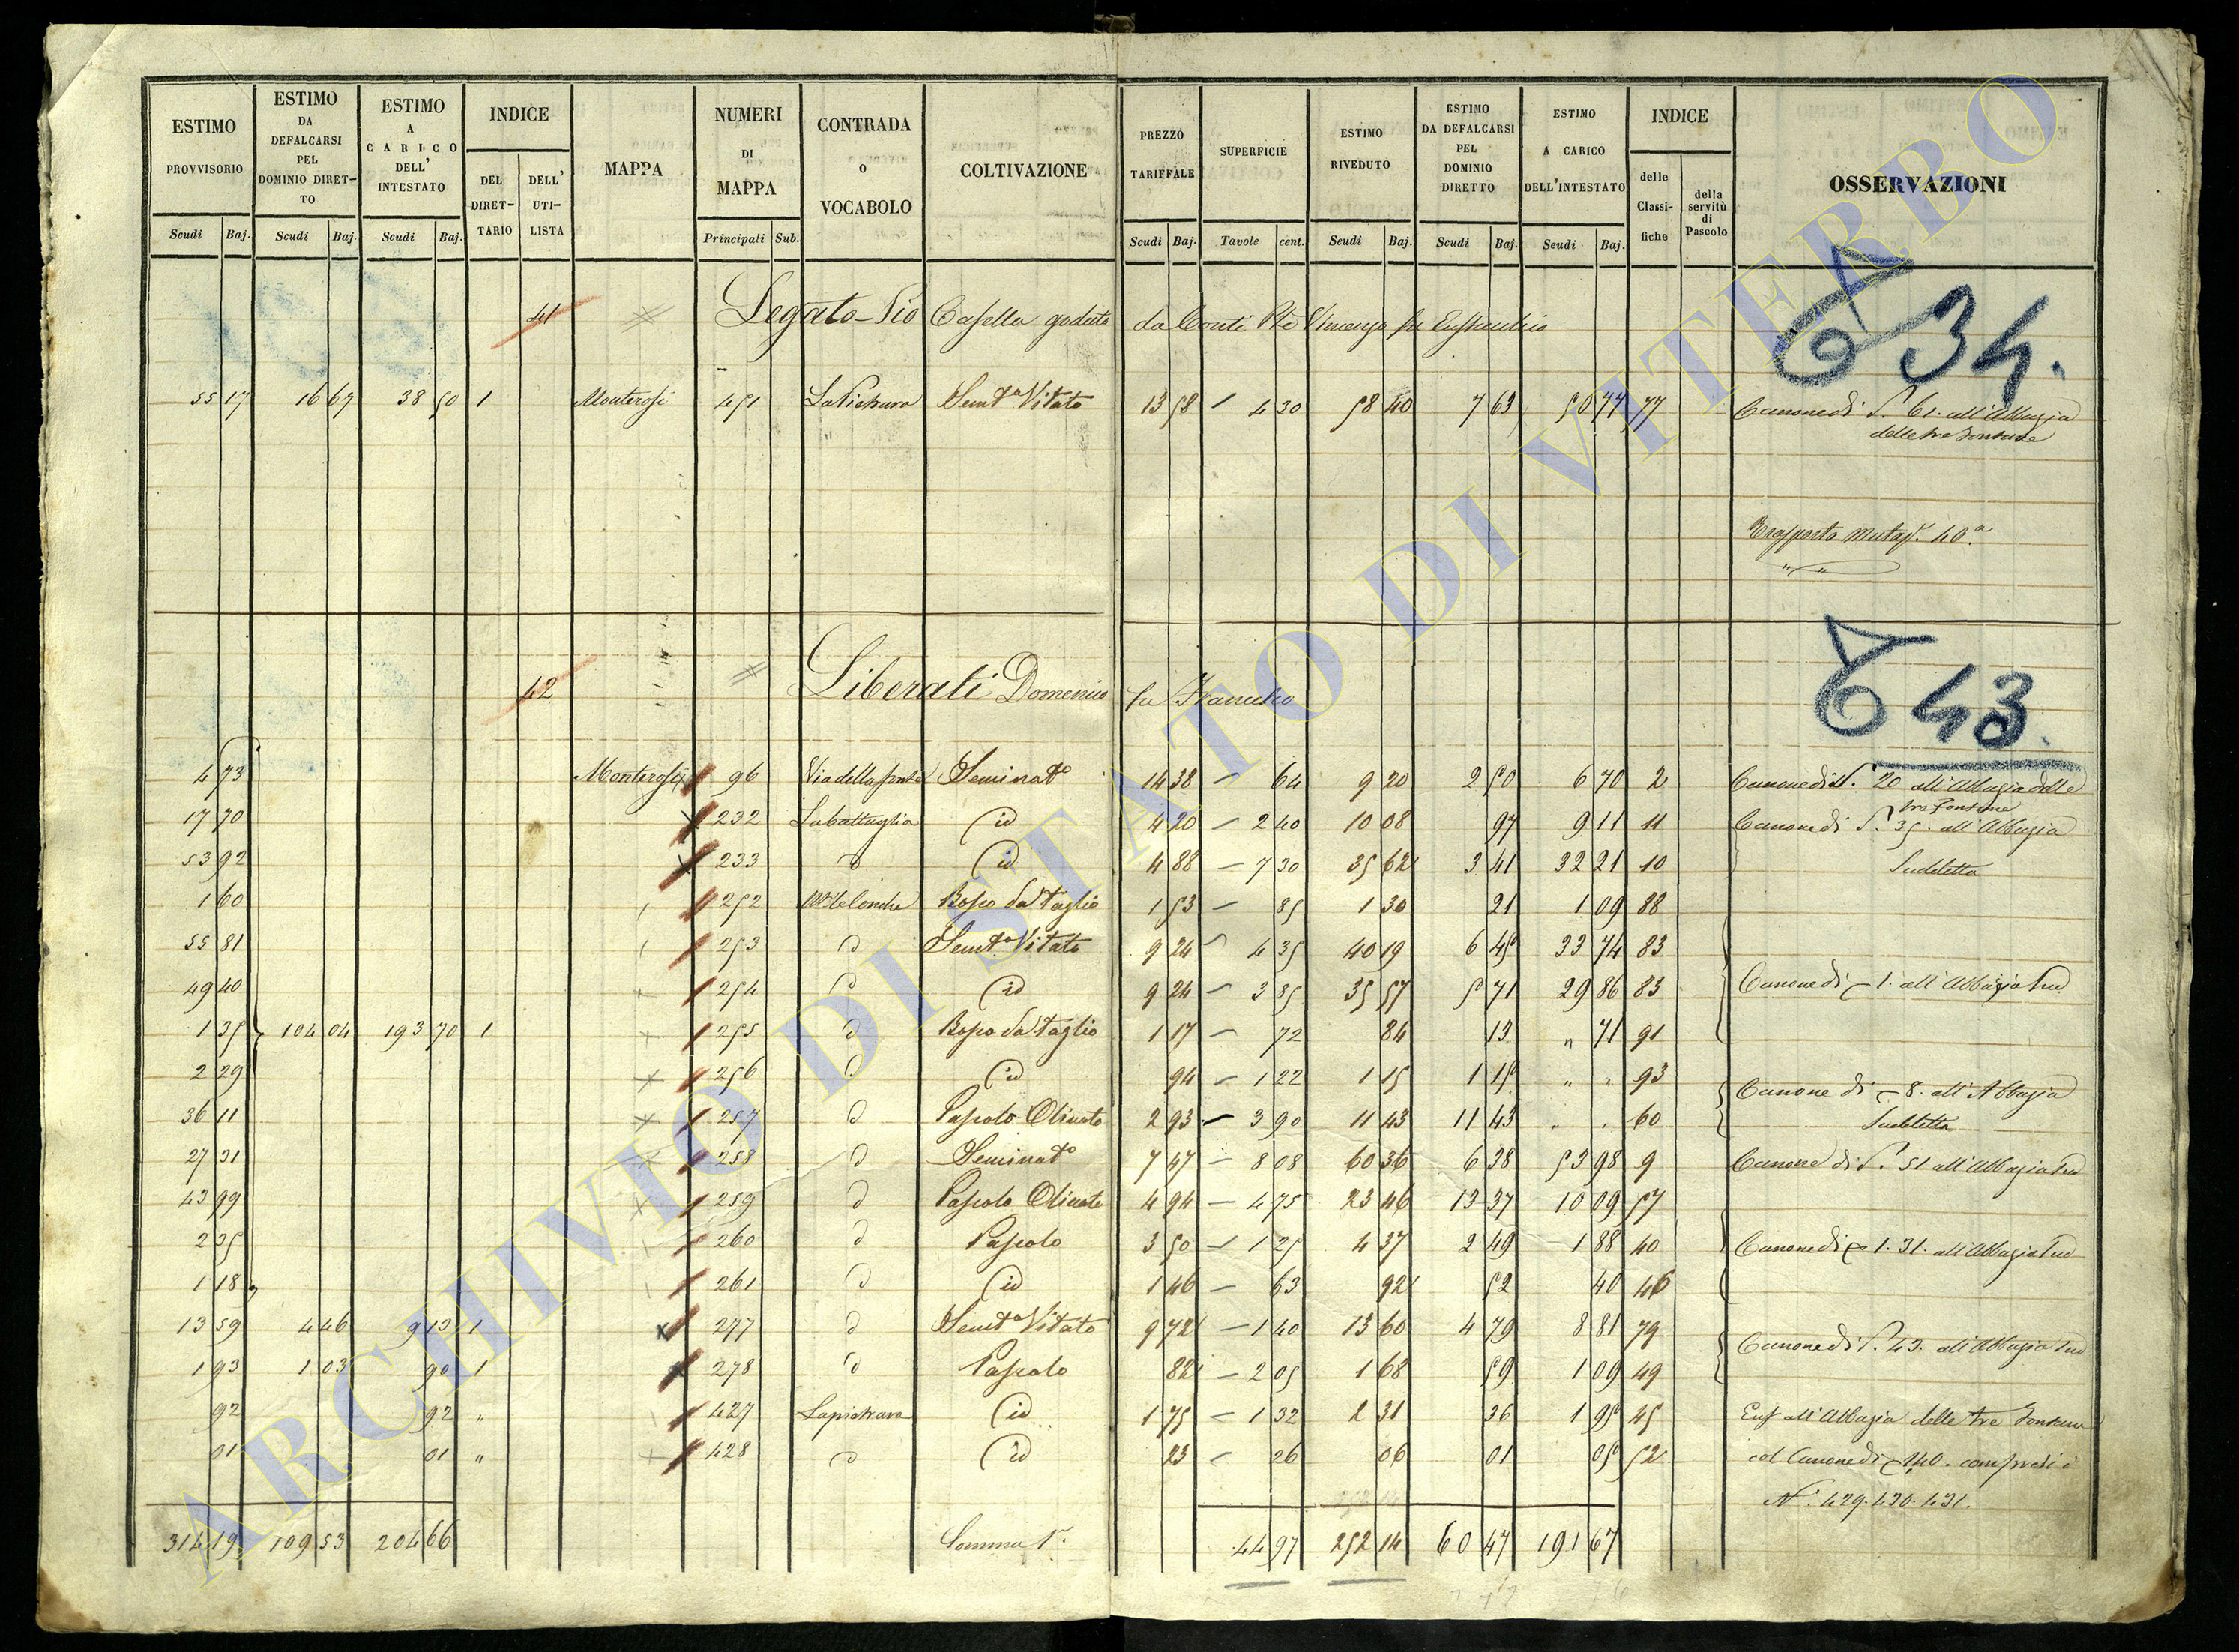 ESTIMO PROVVISORIO Scudi Baj. | ESTIMO DA DEFALCARSI PEL DOMINIO DIRETTO Scudi Baj. | ESTIMO A CARICO DELL' INTESTATO Scudi Baj. | INDICE DEL DIRETTARIO | DELL' UTILISTA | MAPPA | NUMERI DI MAPPA Principali Sub. | CONTRADA O VOCABOLO | COLTIVAZIONE | PREZZO TARIFFALE Scudi Baj. | SUPERFICIE Tavole cent. | ESTIMO RIVEDUTO Scudi Baj. | ESTIMO DA DEFALCARSI PEL DOMINIO DIRETTO Scudi Baj. | ESTIMO A CARICO DELL'INTESTATO Scudi Baj. | INDICE delle Classifiche | della servitù di Pascolo | OSSERVAZIONI
634.
41 Legato-Pio Casella goduto da Conti Vincenzo fu
55 17 | 16 67 | 38 50 | 1 | Monterosi | 451 | La Pietrara | Semt° Vitato | 13 58 | 4 30 | 58 40 | 7 63 | 50 77 | 77 | Canone di 61. all'Abbazia
delle tre Fontane
Trasporto 40.a
643.
42 Liberati Domenico fu
4 73 | Monterosi | 96 | Via della | Seminat° | 14 38 | 64 | 9 20 | 2 50 | 6 70 | 2 | Canone di 20 all'Abbazia delle
tre Fontane
17 70 | 232 | La battaglia | id | 4 20 | 2 40 | 10 08 | 97 | 9 11 | 11 | Canone di 35. all'Abbazia
53 92 | 233 | id | 4 88 | 7 30 | 35 62 | 3 41 | 32 21 | 10 | Suddetta
1 60 | 252 | Bosco da Taglio | 1 53 | 85 | 1 30 | 21 | 1 09 | 88
55 81 | 253 | Semt° Vitato | 9 24 | 4 35 | 40 19 | 6 45 | 33 74 | 83
49 40 | 254 | id | 9 24 | 3 85 | 35 57 | 5 71 | 29 86 | 83 | Canone di 1. all'Abbazia Sud
1 35 | 104 04 | 193 70 | 1 | 255 | Bosco da Taglio | 1 17 | 72 | 84 | 13 | " 71 | 91
2 29 | 256 | id | 94 | 1 22 | 1 15 | 1 15 | " " | 93 | Canone di 8. all'Abbazia
36 11 | 257 | Pascolo Olivato | 2 93 | 3 90 | 11 43 | 11 43 | " " | 60 | Suddetta
27 31 | 258 | Seminat° | 7 47 | 8 08 | 60 36 | 6 38 | 53 98 | 9 | Canone di 51 all'Abbazia Sud
43 99 | 259 | Pascolo Olivato | 4 94 | 4 75 | 23 46 | 13 37 | 10 09 | 57
2 35 | 260 | Pascolo | 3 50 | 1 25 | 4 37 | 2 49 | 1 88 | 40 | Canone di 1.31. all'Abbazia Sud
1 18 | 261 | id | 1 46 | 63 | 92 | 52 | 40 | 46
13 59 | 4 46 | 9 13 | 1 | 277 | Semt° Vitato | 9 72 | 1 40 | 13 60 | 4 79 | 8 81 | 79 | Canone di 43. all'Abbazia Sud
1 93 | 1 03 | 90 | 1 | 278 | Pascolo | 82 | 2 05 | 1 68 | 59 | 1 09 | 49
92 | 92 | " | 427 | La pietrara | id | 1 75 | 1 32 | 2 31 | 36 | 1 95 | 45 | all'Abbazia delle tre Fontane
01 | 01 | " | 428 | id | 23 | 26 | 06 | 01 | 05 | 52 | col Canone di 1.40. compresi i
N.i 429.430.431.
314 19 | 109 53 | 204 66 | Somma 1a. | 44 97 | 252 14 | 60 47 | 191 67
ARCHIVIO DI STATO DI VITERBO